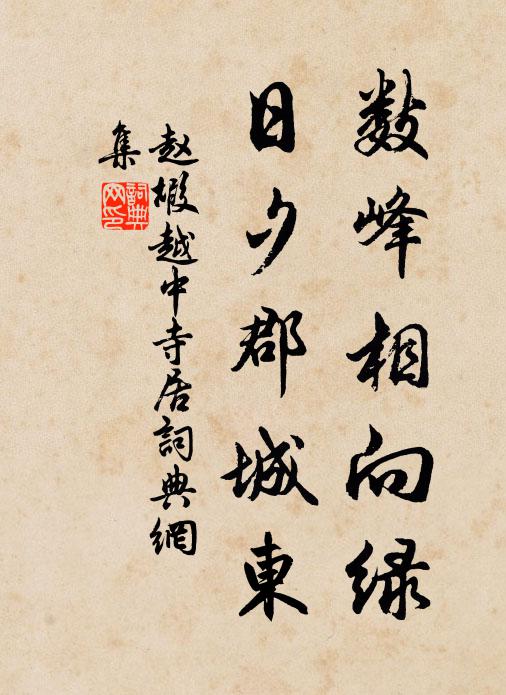 数峰相向绿
日夕郡城東
赵嘏越中寺居詞典網
集
詞典
网印